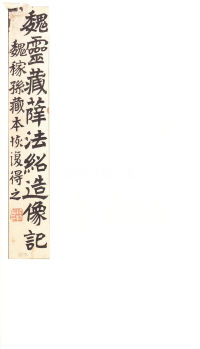 魏靈藏薛法紹造像記
魏稼孫藏本恢復得之